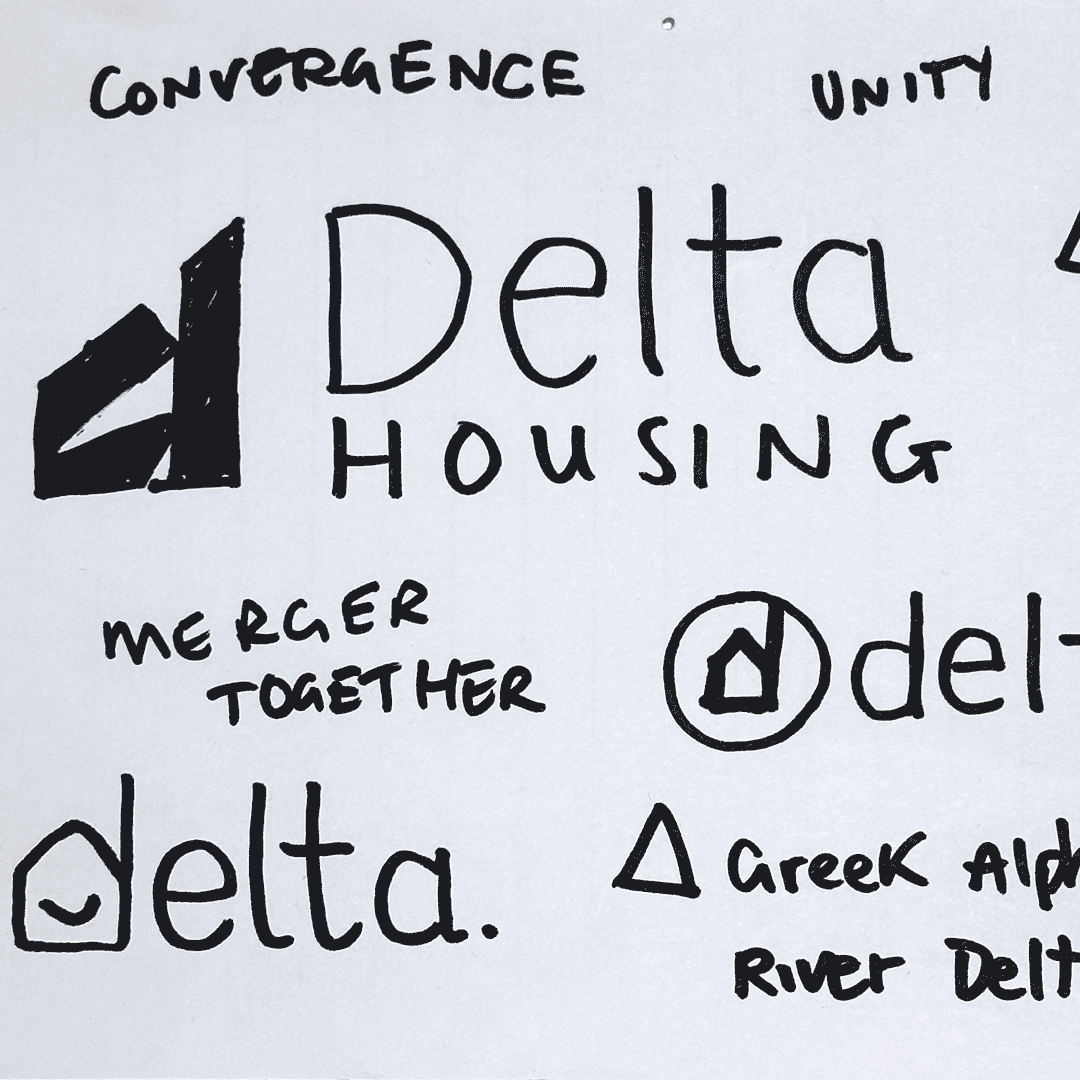 CONVERGENCE
UNITY
Delta
HOUSING
MERGER
TOGETHER
delt
delta.
Δ Greek Alph
River Delt